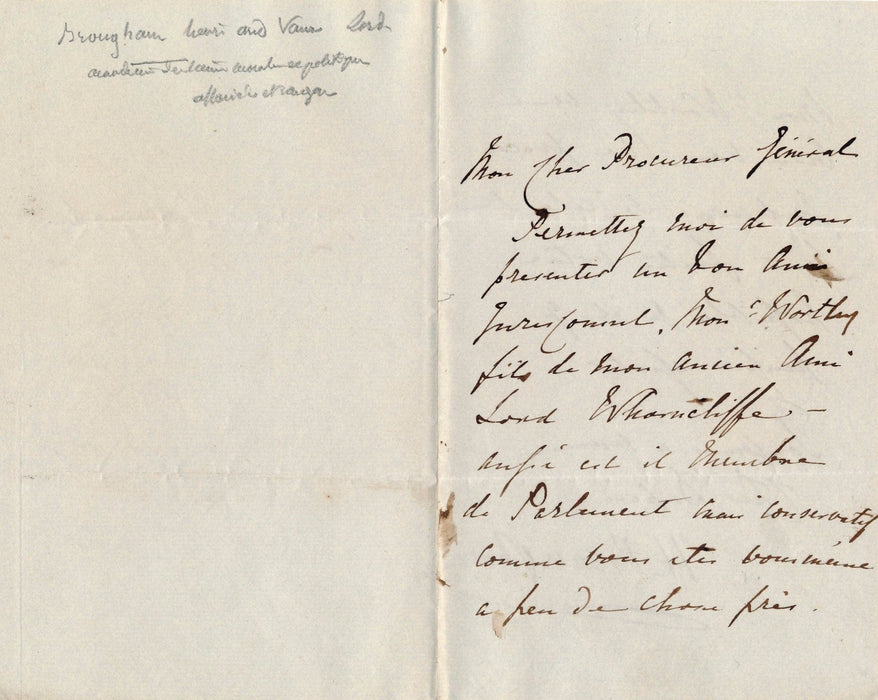 Brougham henri and Vaux Lord
morale et politique
associé etranger
Mon Cher Procureur Général
Permettez moi de vous
presenter un bon Ami
Jurisconsul, Monr. Wortley
fils de mon ancien Ami
Lord Wharncliffe –
aussi est il Membre
de Parlement mais conservatif
comme vous etes vousmême
a peu de chose près.